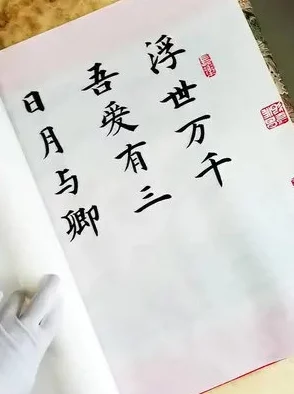 浮世万千
吾爱有三
日月与卿